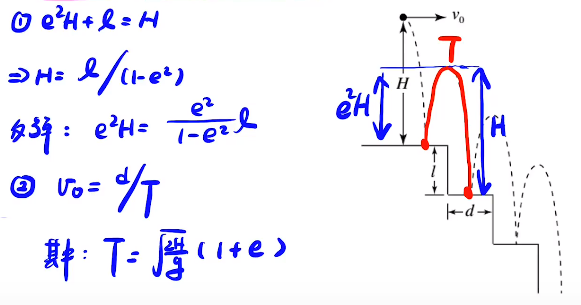 ① e²H + l = H
⇒ H = l/(1-e²)
反弹: e²H = e²/(1-e²) l
② v₀ = d/T
其中: T = √(2H/g) (1+e)
v₀
T
H
e²H
H
l
d